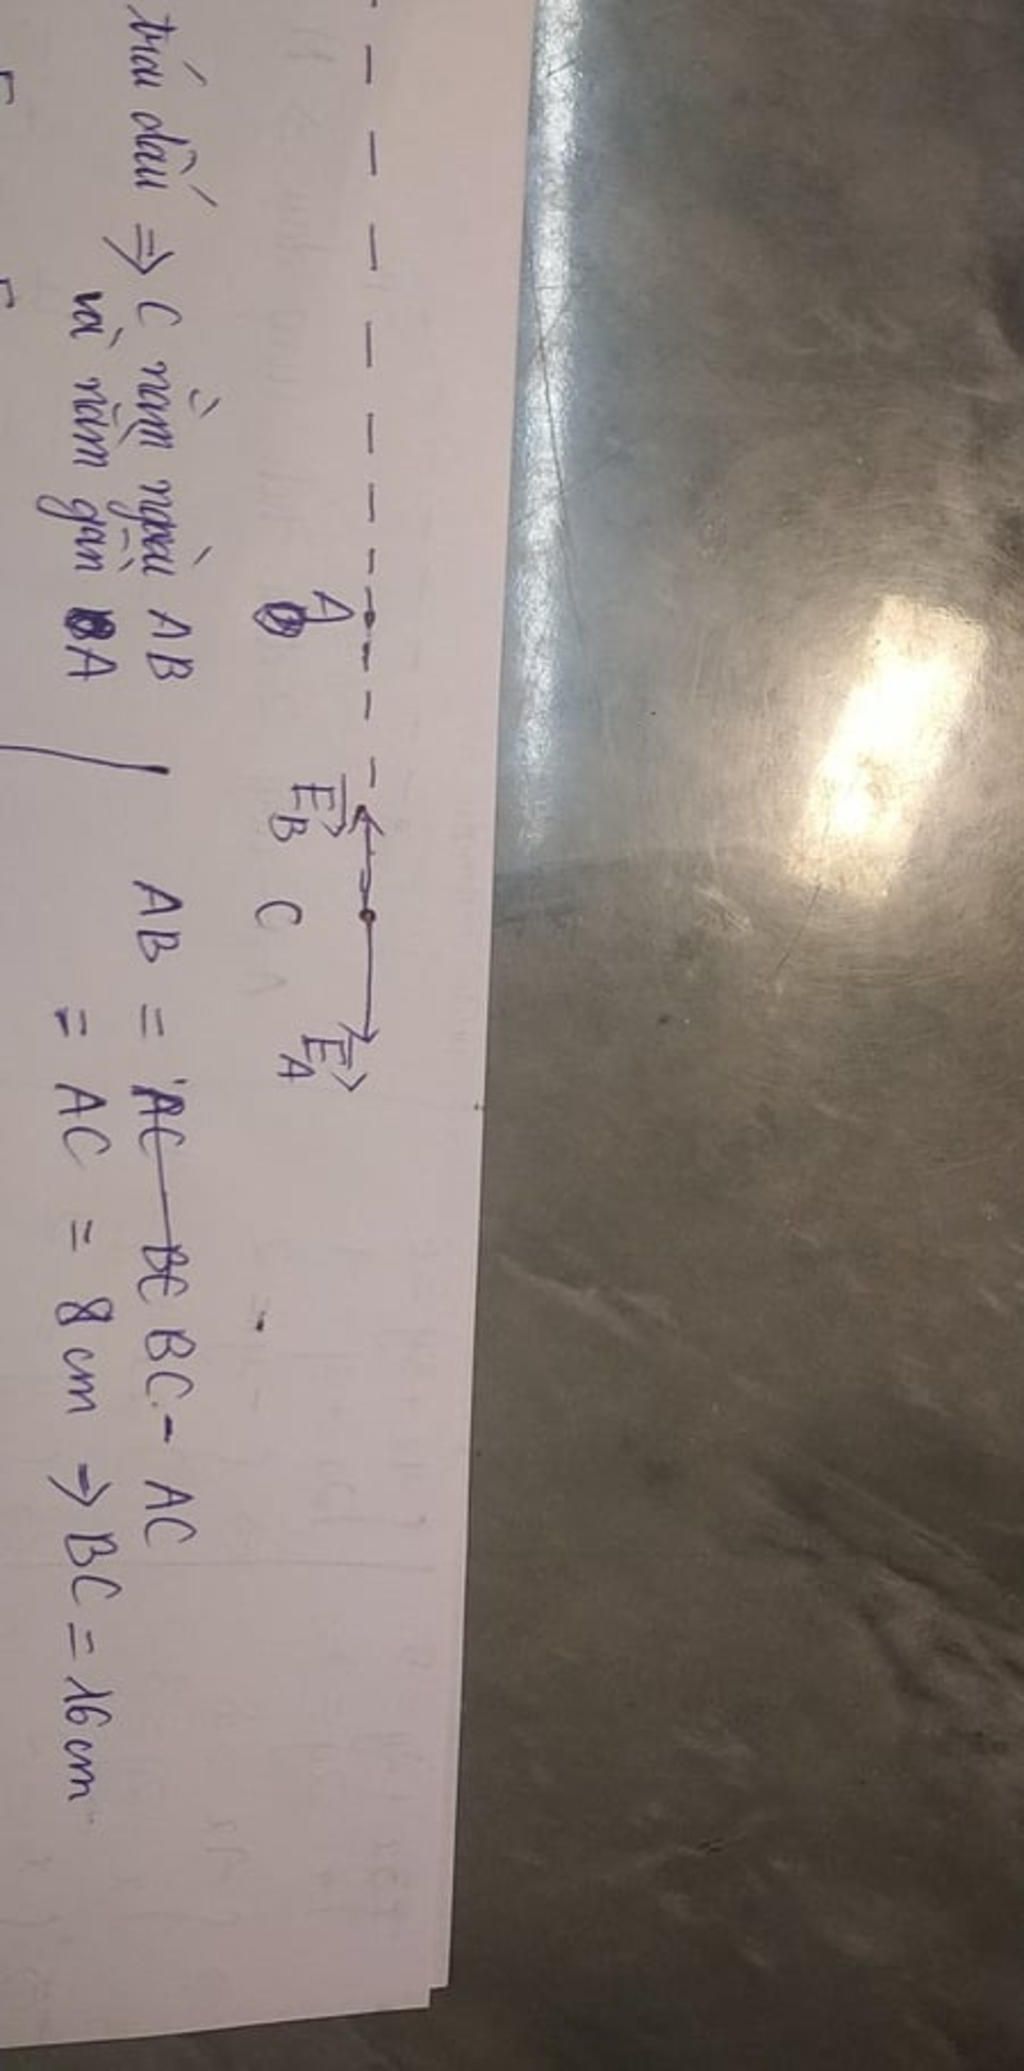 A
E_B C E_A
trái dấu ⇒ C nằm ngoài AB AB = AC BC BC - AC
và nằm gần A = AC = 8 cm ⇒ BC = 16 cm